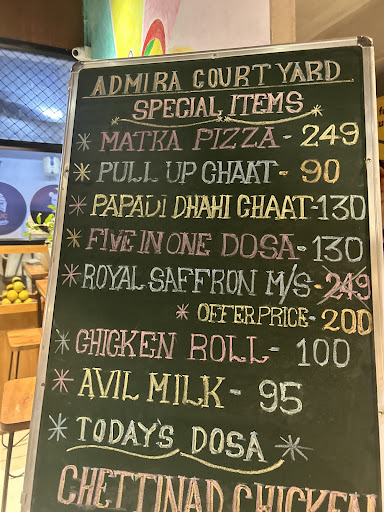 ADMIRA COURTYARD
SPECIAL ITEMS
* MATKA PIZZA - 249
* PULL UP CHAAT - 90
* PAPADI DHAHI CHAAT - 130
* FIVE IN ONE DOSA - 130
* ROYAL SAFFRON M/S - 249
* OFFER PRICE - 200
* CHICKEN ROLL - 100
* AVIL MILK - 95
* TODAY'S DOSA *
CHETTINAD CHICKEN